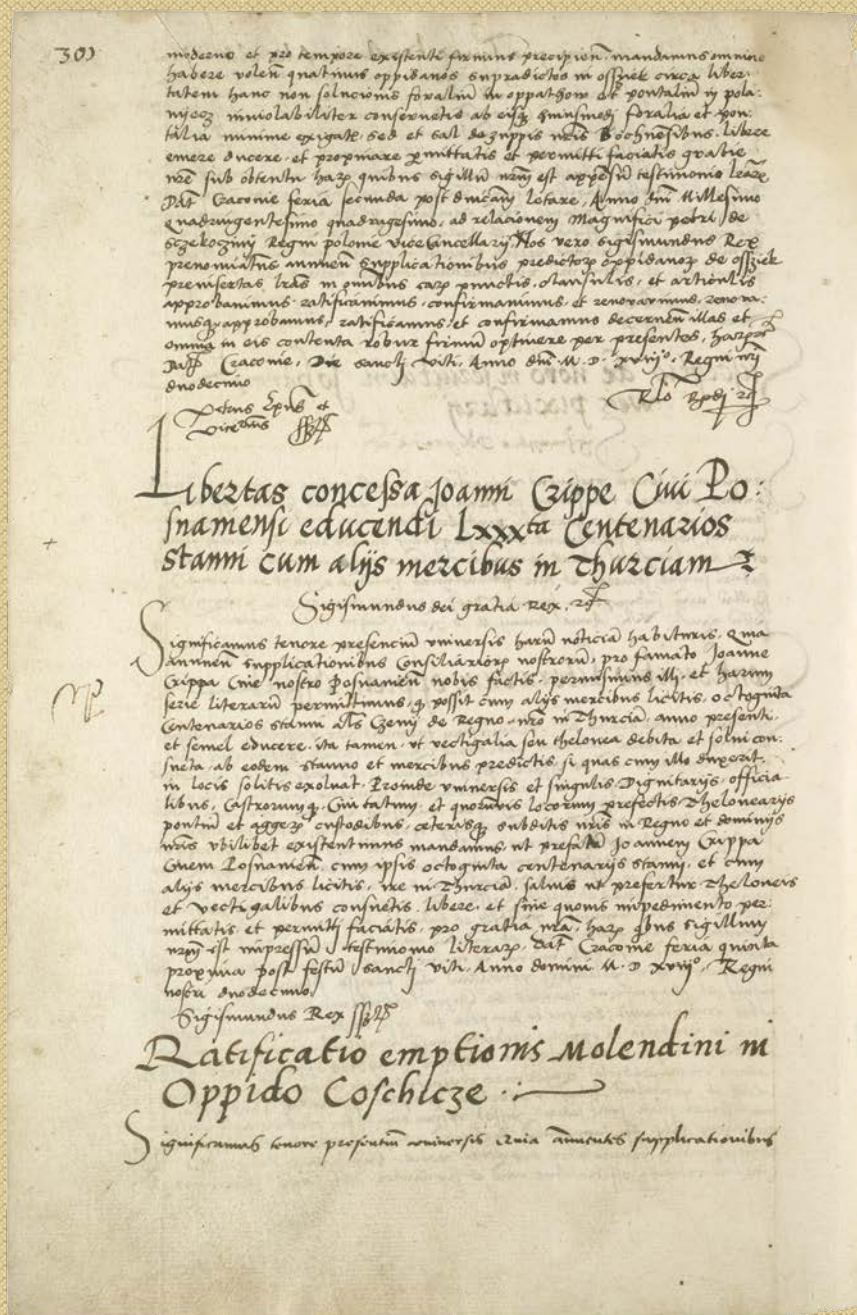 301
moderno et pro tempore existenti firmius precipien̄ mandamus omnino
habere volen̄ quatinus oppidanos supradictos in ossziek circa liber-
tatem hanc non solucionis foralium in oppathow et pontalium in pola-
nijecz inviolabiliter conservetis ab eisq huiusmodi foralia et pon-
talia minime exigatis sed et sal de zuppis nris Bochnensibus libere
emere ducere et propinare pmittatis et permitti faciatis gratie
nre sub obtentu harz quibus sigillū nrm est appensū testimonio lrarz
Dat̄ Cracovie feria secunda post dnicam letare, Anno dnī Millesimo
quadringentesimo quadragesimo, ad relacionem Magnifici petri de
Sczekocziny Regni polonie vicecancellarij, Nos vero Sigismundus Rex
prenominatus annuen̄ supplicationibus predictorz oppidanorz de ossziek
preinsertas lras in omnibus earz punctis, clausulis, et articulis
approbavimus ratificavimus, confirmavimus, et renovavimus, renova-
musq approbamus, ratificamus, et confirmamus decernen̄ illas et
omnia in eis contenta robur firmū optinere per presentes, harz
Dat̄ Cracovie, Die sancti viti, Anno dnī M. D. xviijº. Regni nri
duodecimo
Petrus Epus et
Vicecan̄us
Libertas concessa Joanni Crippe Civi Po:
snamensi educendi Lxxxta Centenarios
stanni cum alijs mercibus in Thurciam
Sigismundus dei gratia Rex.
Significamus tenore presenciū universis harū noticiā habituris, Quia
annuen̄ supplicationibus Consiliariorz nostrorū, pro famato Joanne
Crippa Cive nostro Posnanien̄ nobis factis, permisimus illi, et harum
serie literarū permittimus, q possit cum alijs mercibus licitis, octoginta
Centenarios stanni als Czeny de Regno nro in Thurciā, anno presenti,
et semel educere, ita tamen, ut vectigalia seu thelonea debita et solvi con-
sueta, ab eodem stanno et mercibus predictis, si quas cum illo duxerit,
in locis solitis exolvat, Proinde universis et singulis Dignitarijs, officia
libus, Castrorumq, Civitatum, et quorūvis locorum prefectis Thelonearijs
pontiū et aggerz custodibus, ceterisq subditis nris in Regno et dominijs
nris ubilibet existentibus mandamus, ut prefatū Joannem Crippa
Civem Posnanien̄, cum ipsis octoginta centenarijs stanni, et cum
alijs mercibus licitis, ire in Thurciā, salvis ut prefertur Theloneis
et vectigalibus consuetis, libere, et sine quovis impedimento per-
mittatis, et permitti faciatis, pro gratia nrā, harz qbus sigillum
nrm est impressū testimonio literarz, Dat̄ Cracovie feria quinta
proxima post festū sancti viti, Anno domini M. D xviijº, Regni
nostri duodecimo
Sigismundus Rex
Ratificatio emptionis Molendini in
Oppido Coschicze
Significamus tenore presentiū universis Quia annuentes supplicationibus